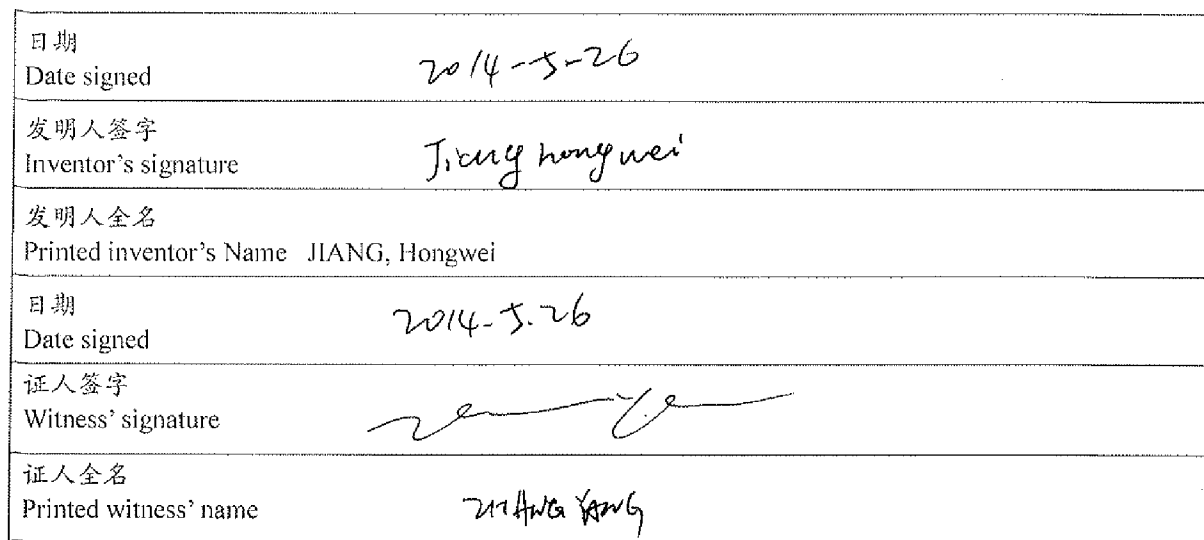 日期
Date signed 2014-5-26
发明人签字
Inventor's signature Jiang hongwei
发明人全名
Printed inventor's Name JIANG, Hongwei
日期
Date signed 2014-5.26
证人签字
Witness' signature
证人全名
Printed witness' name ZHANG YANG